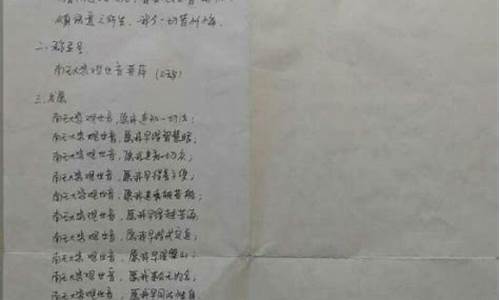 二、称圣号
南无大悲观世音菩萨
三、发愿
南无大悲观世音，愿我速知一切法；
南无大悲观世音，愿我早得智慧眼；
南无大悲观世音，愿我速度一切众；
南无大悲观世音，愿我早得善方便；
南无大悲观世音，愿我速乘般若船；
南无大悲观世音，愿我早得越苦海；
南无大悲观世音，愿我速得戒定道；
南无大悲观世音，愿我早登涅槃山；
南无大悲观世音，愿我速会无为舍；
南无大悲观世音，愿我早同法性身